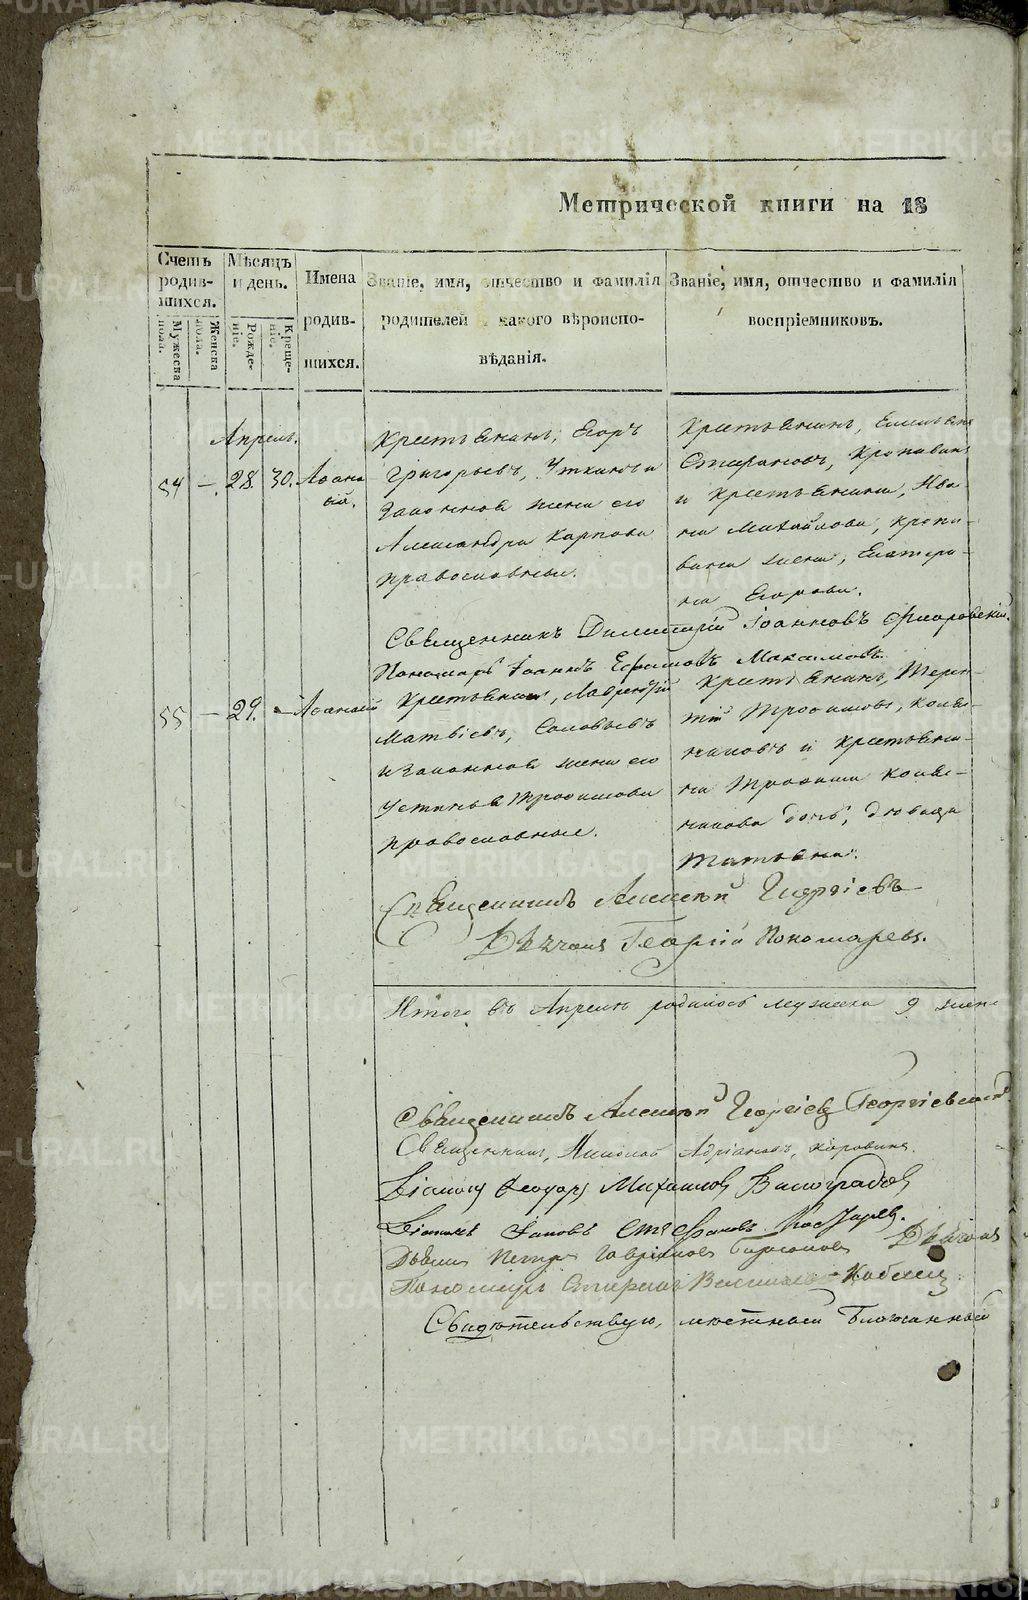 Метрической книги на 18
Счетъ родив-шихся.
Мужеска пола.
Женска пола.
Мѣсяцъ и день.
Рожде-ніе.
Креще-ніе.
Имена
родив-
шихся.
Званіе, имя, отчество и фамилія
родителей и какого вѣроиспо-
вѣданія.
Званіе, имя, отчество и фамилія
воспріемниковъ.
Апрель.
54 – 28. 30. Аѳана
сій.
Крестьянинъ, Егоръ
Григорьевъ, Уткинъ и
законная жена его
Александра Карпова
православные.
Крестьянинъ,
Стефановъ,
и крестьянина, Ива
на Михайлова, Кропи-
вина жена, Екатери-
на Егорова.
Священникъ Димитрій Іоанновъ Флоровскій.
Пономарь Іоаннъ Ефимовъ Максимовъ.
55 – 29. – Аѳанасій
Крестьянинъ, Лаврентій
Матвіевъ, Соловьевъ
и законная жена его
Устинья Трофимова
православные.
Крестьянинъ, Терен-
тій Трофимовъ,
и крестьяни-
на Трофима
дочь, дѣвица
Татьяна.
Священникъ Алексѣй Георгіевъ
Дьячокъ Георгій Пономаревъ.
Итого въ Апрелѣ родилось мужеска 9 женс
Священникъ Алексѣй Георгіевъ Георгіевскій.
Священникъ, Николай Адріановъ, Коровинъ.
Діаконъ Ѳеодоръ Михаиловъ Виноградовъ
Діаконъ Іаковъ Стефановъ
Дьячокъ Петръ Гавріиловъ Дьячокъ
Пономарь Стефанъ
Свидѣтельствую, мѣстный Благочинный
METRIKI.GASO-URAL.RU